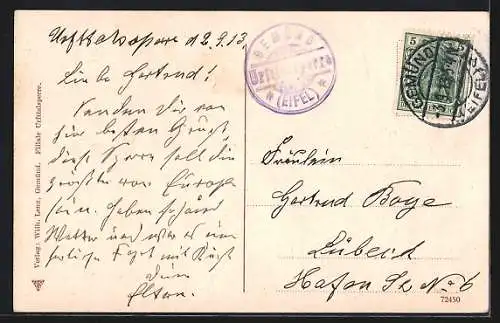 Urfttalsperre d 2.9.13.
Liebe Gertrud!
Senden Dir von
hier besten Gruß
diese Sperre soll die
größten von Europa
sein. Haben schönes
Wetter und war es eine
herliche Fahrt mit Gruß
Deine
Eltern.
GEMÜND
Urfttalsperre
(EIFEL)
5
GEMÜND
(EIFEL)
Fräulein
Gertrud Boye
Lübeck
Hafen Str No 6
Verlag: Wilh. Lenz, Gemünd. Filiale Urfttalsperre.
72450